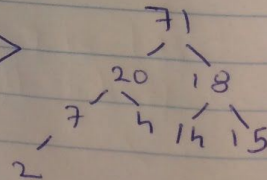 71
20 18
7 4 14 15
2